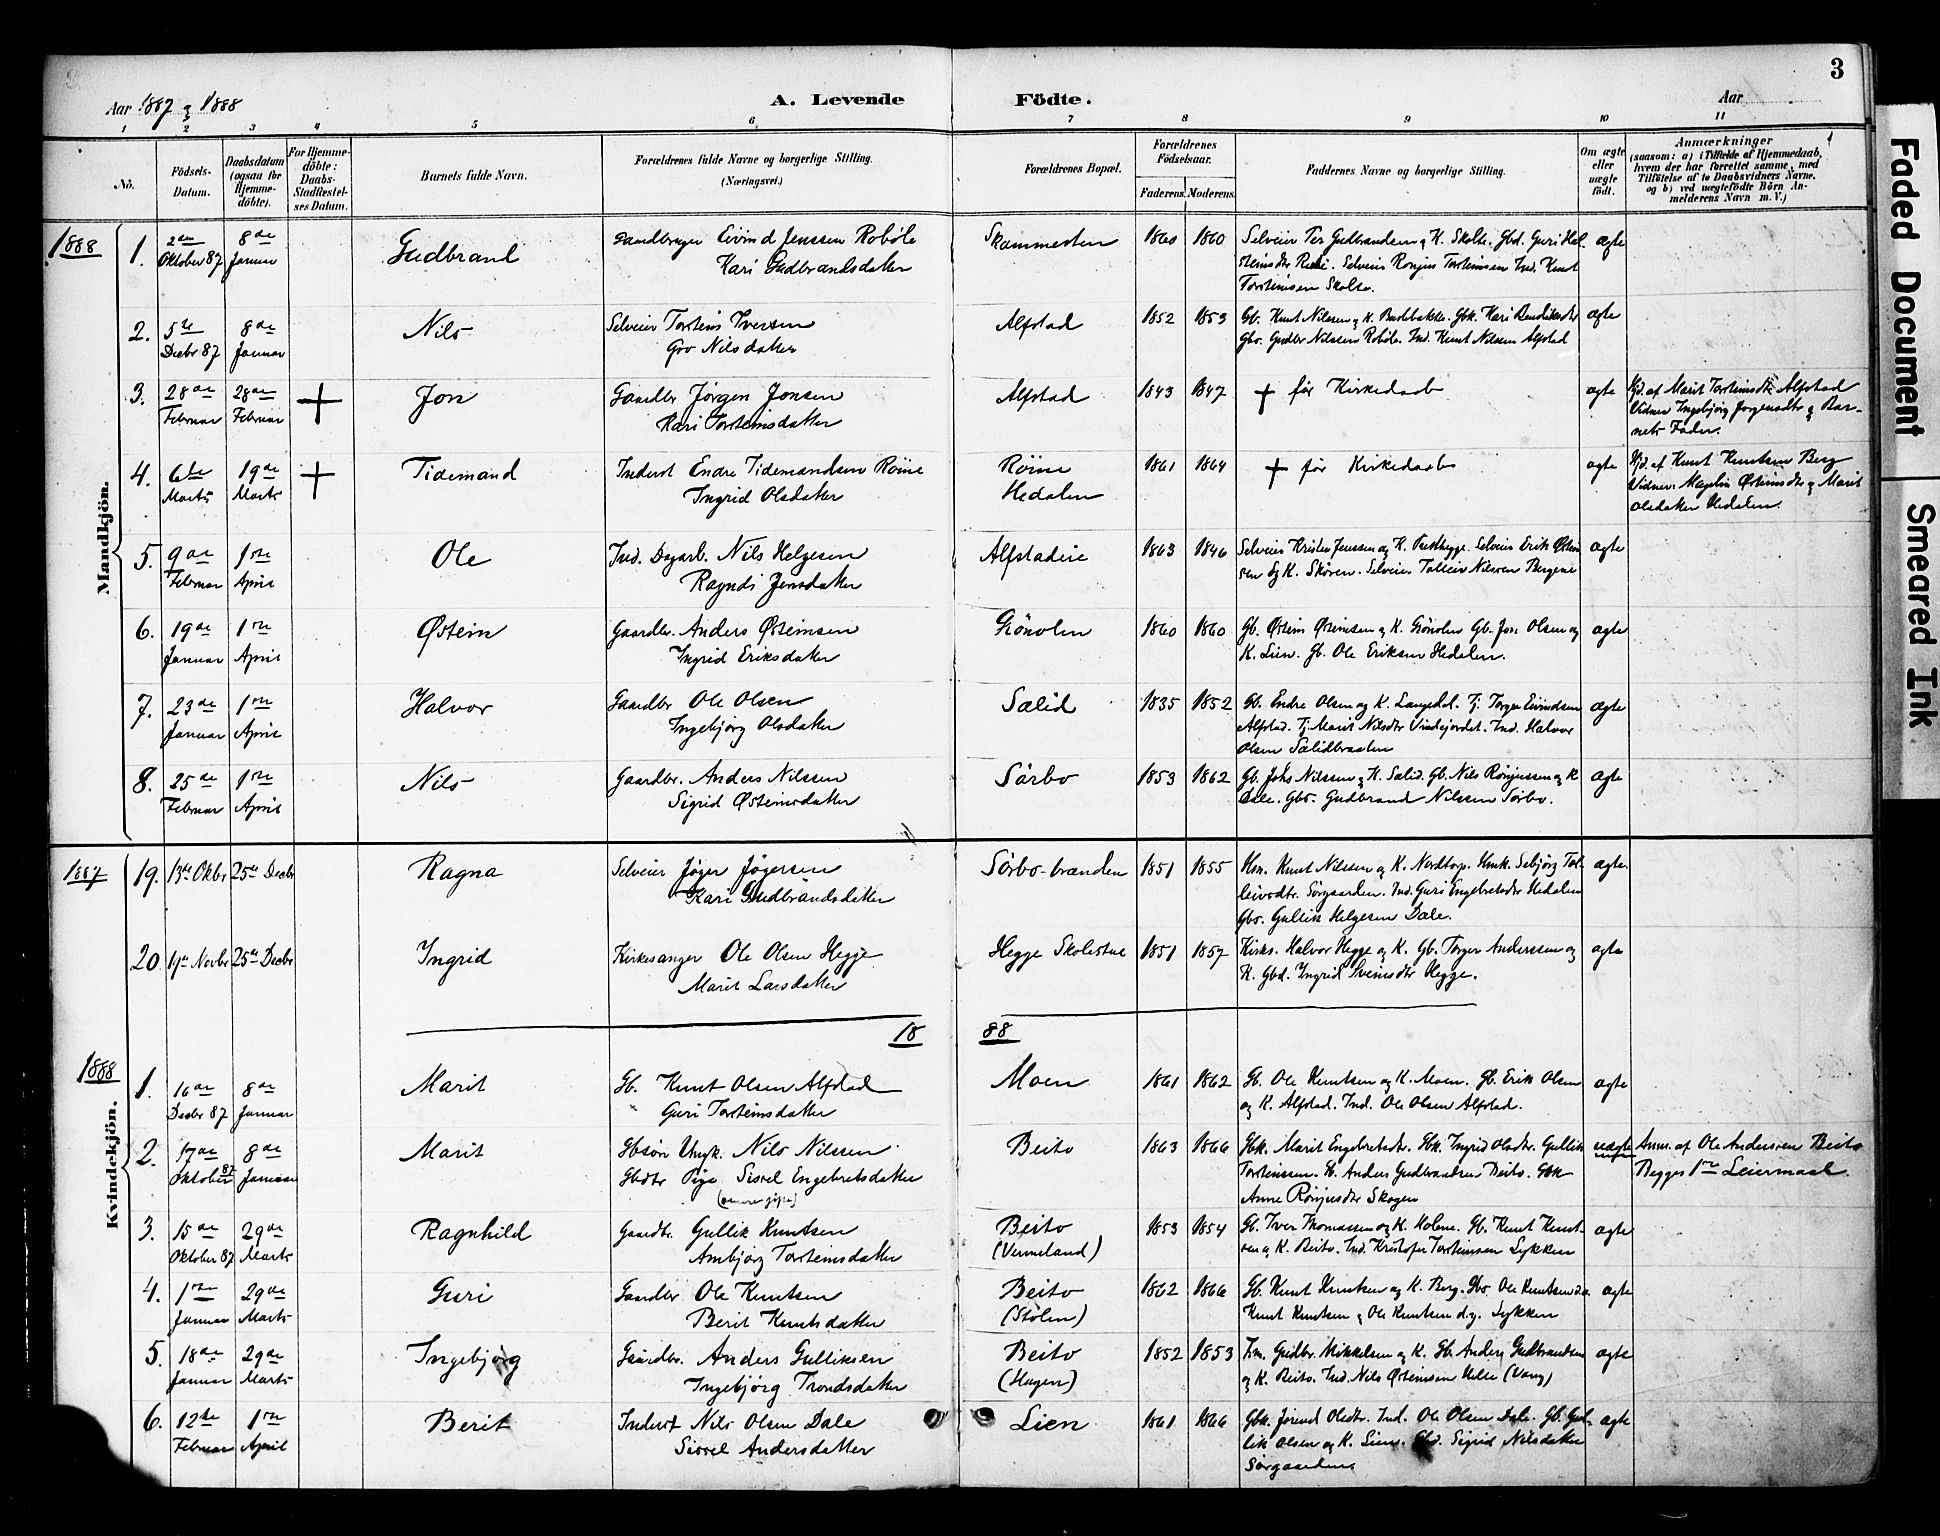 3
Aar 1887 & 1888
A. Levende Födte.
Aar
1 2 3 4 5 6 7 8 9 10 11
No.
Födsels-Datum.
Daabsdatum (ogsaa for Hjemme-döbte).
For Hjemme-döbte: Daabs-Stadfæstel-ses Datum.
Barnets fulde Navn.
Forældrenes fulde Navne og borgerlige Stilling. (Næringsvei.)
Forældrenes Bopæl.
Forældrenes Födselsaar.
Faderens. Moderens.
Faddernes Navne og borgerlige Stilling.
Om ægte eller uægte födt.
Anmærkninger
(saasom: a) i Tilfælde af Hjemmedaab,
hvem der har forrettet samme, med
Tilföielse af to Daabsvidners Navne,
og b) ved uægtefödte Börn An-
melderens Navn m. V.)
Mandkjön.
1888 1. 2den Oktober 87 8de Januar Gudbrand Gaardbruger Eivind Jenssen Robøle
Kari Gudbrandsdatter
Skammestein 1860 1860 Selveier Per Gudbrandsen & K. Skolte. Gbd. Guri Hal-
steinsdtr . Selveier Ronjus Torsteinsen Ind. Knut
Torsteinsen Skolte. ægte
2. 5te Decbr 87 8de Januar Nils Selveier Torstein Iversen
Gro Nilsdatter
Alfstad 1852 1853 Gb. Knut Nilssen & K. . Gbk. Kari Bendiksdtr
Gbs. Gudbr Nilssen Robøle. Ind. Knut Nilssen Alfstad ægte
3. 28de Februar 28de Februar + Jon Gaardbr Jørgen Jonsen
Kari Torsteinsdatter
Alfstad 1843 1847 + før Kirkedaab ægte
Hjd. af Marit Torsteinsdtr Alfstad
Vidner Ingebjørg Jørgensdtr & Bar-
nets Fader.
4. 6te Marts 19de Marts + Tidemand Inderst Endre Tidemandsen Røine
Ingrid Olsdatter
Røine Hedalen 1861 1864 + før Kirkedaab ægte
Hjd. af Knut Knutsen Berg
Vidner: Østeinsdtr & Marit
Olsdatter Hedalen.
5. 9de Februar 1ste April Ole Ind. Dagarb. Nils Helgesen
Ragndi Jensdatter
Alfstadeie 1863 1846 Selveier Krister Jenssen og K. . Selveier Erik Østein-
sen og K. Skøien. Selveier Tolleiv Nilssen Bergene ægte
6. 19de Januar 1ste April Østein Gaardbr. Anders Østeinsen
Ingrid Eriksdatter
Grönolen 1860 1860 Gb. Østein Østeinsen & K. Grönolen Gb. Jon Olsen og
K. Lien. Gb. Ole Eriksen Hedalen. ægte
7. 23de Januar 1ste April Halvor Gaardbr Ole Olsen
Ingebjörg Olsdatter
Sælid 1835 1852 Gb. Endre Olsen og K. Langedal. Tj. Torger Eivindsen
Alfstad. Tj. Marit Nilsdtr Vindejordet. Ind. Halvor
Olsen Sælidbraaten ægte
8. 25de Februar 1ste April Nils Gaardbr. Anders Nilssen
Sigrid Østeinsdatter
Sörbo 1853 1862 Gb. Johs Nilssen & K. Sælid. Gb. Nils Rönjussen og K
Dale. Gbs. Gudbrand Nilssen Sörbo. ægte
Kvindekjön.
1887 19. 13de Oktbr 25de Decbr Ragna Selveier Jøger Jøgersen
Kari Gudbrandsdatter
Sörbo-brænden 1851 1855 Hm. Knut Nilssen og K. Nordtorp. Hmk. Sebjörg Tol-
leivsdtr. Sörgaarden. Ind. Guri Engebretsdtr Hedalen
Gbs. Gullik Helgesen Dale. ægte
20 Novbr 25de Decbr Ingrid Kirkesanger Ole Olsen Hegge
Marit Larsdatter
Hegge Skolestue 1851 1857 Kirks. Halvor Hegge og K. Gb. Torger Anderssen og
K. Gbd. Ingrid Sveinsdtr Hegge. ægte
1888
1888 1. 16de Decbr 87 8de Januar Marit Gb. Knut Olsen Alfstad
" Guri Torsteinsdatter
Moen 1861 1862 Gb. Ole Knutsen og K. Moen. Gb. Erik Olsen
og K. Alfstad. Ind. Ole Olsen Alfstad. ægte
2. 17de Oktober 87 8de Januar Marit Gbsön Ungk. Nils Nilssen
Gbdtr Pige Sissel Engebretsdatter
Beito 1863 1866 Gbk. Marit Engebretsdtr. Gbk. Ingrid Olsdtr. Gullik
Torsteinssen. Gb. Anders Gudbrandsen Beito. Gbk
Anne Rönjusdtr Skogen uægte
Anm. af Ole Anderssen Beito
Begges 1ste Leiermaal.
3. 15de Oktober 87 29de Marts Ragnhild Gaardbr. Gullik Knutsen
Ambjørg Torsteinsdatter
Beito (Vermeland) 1853 1854 Gb. Iver Thomassen og K. Holene. Gb. Knut Knut-
sen & K. Beito. Ind. Kristofer Torsteinsen Lykken ægte
4. 1ste Januar 29de Marts Guri Gaardbr Ole Knutsen
Berit Knutsdatter
Beito (Stölen) 1862 1866 Gb. Knut Knutsen og K. Berg. Gbs Ole Knutsen do
Knut Knutsen & Ole Knutsen d.y. Lykken ægte
5. 18de Januar 29de Marts Ingebjørg Gaardbr. Anders Gulliksen
Ingebjørg Trondsdatter
Beito (Hagen) 1852 1853 Hm. Gudbr. Mikkelsen og K. Gb. Anders Gudbrandsen
og K. Beito. Ind. Nils Østeinsen Helle (Vang) ægte
6. 12te Februar 1ste April Berit Inderst Nils Olsen Dale
Sissel Andersdatter
Lien 1861 1866 Gbk. Jörand Olsdtr. Ind. Ole Olsen Dale. Gb. Gul-
lik Olsen og K. Lien. Gbd. Sigrid Nilsdatter
Sörgaarden. ægte
Faded Document
Smeared Ink